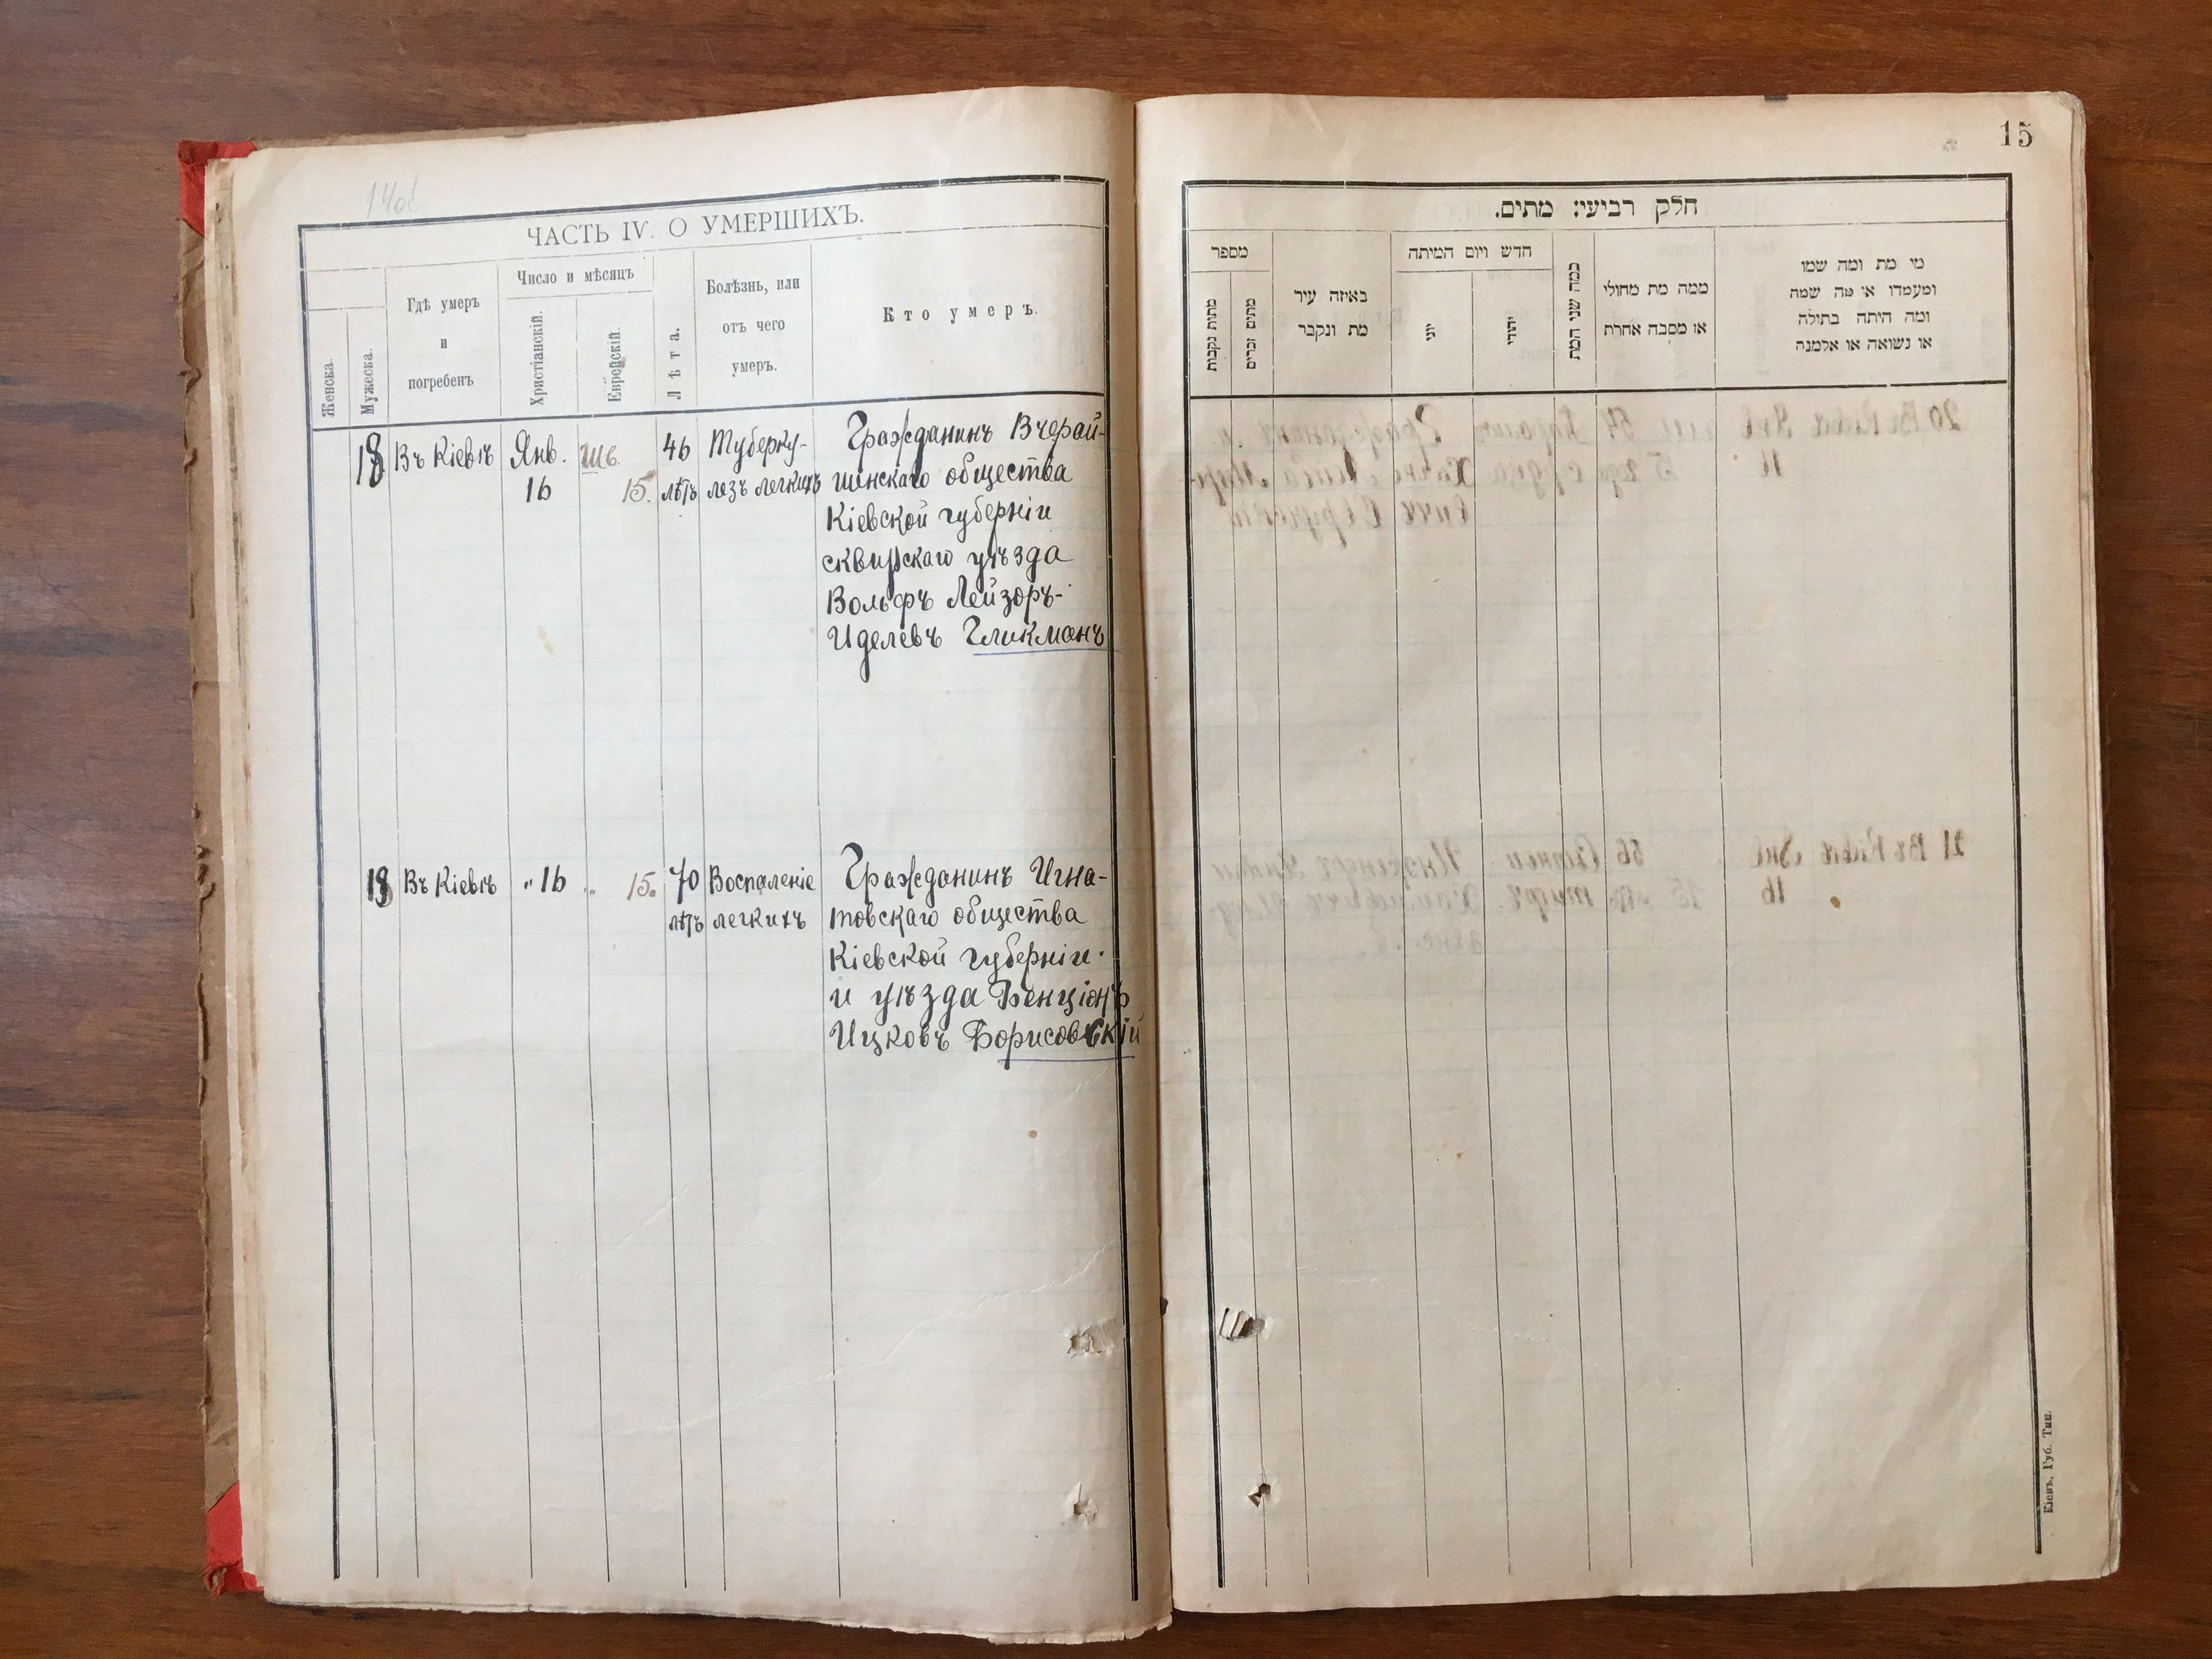 14об
ЧАСТЬ IV. О УМЕРШИХЪ.
Женска.
Мужеска.
Гдѣ умеръ
и
погребенъ
Число и мѣсяцъ
Христіанскій.
Еврейскій.
Лѣта.
Болѣзнь, или
отъ чего
умеръ.
Кто умеръ.
18 Въ Кіевѣ Янв. Шв. 46 Туберку- Гражданинъ Вчерай-
16 15. лѣтъ лезъ легкихъ шинскаго общества
Кіевской губерніи
сквирскаго уѣзда
Вольфъ Лейзоръ-
Иделевъ Гликманъ
Въ Кіевѣ „ 16 „ 15. 70 Воспаленіе Гражданинъ Игна-
лѣтъ легкихъ товскаго общества
Кіевской губерніи
и уѣзда Бенціонъ
Ицковъ Борисовскій
15
חלק רביעי: מתים.
מספר
מתות נקבות
מתים זכרים
באיזה עיר
מת ונקבר
חדש ויום המיתה
יוני
יהודי
כמה שני המת
ממה מת מחולי
או מסבה אחרת
מי מת ומה שמו
ומעמדו או מה שמה
ומה היתה בתולה
או נשואה או אלמנה
Кіевъ, Губ. Тип.